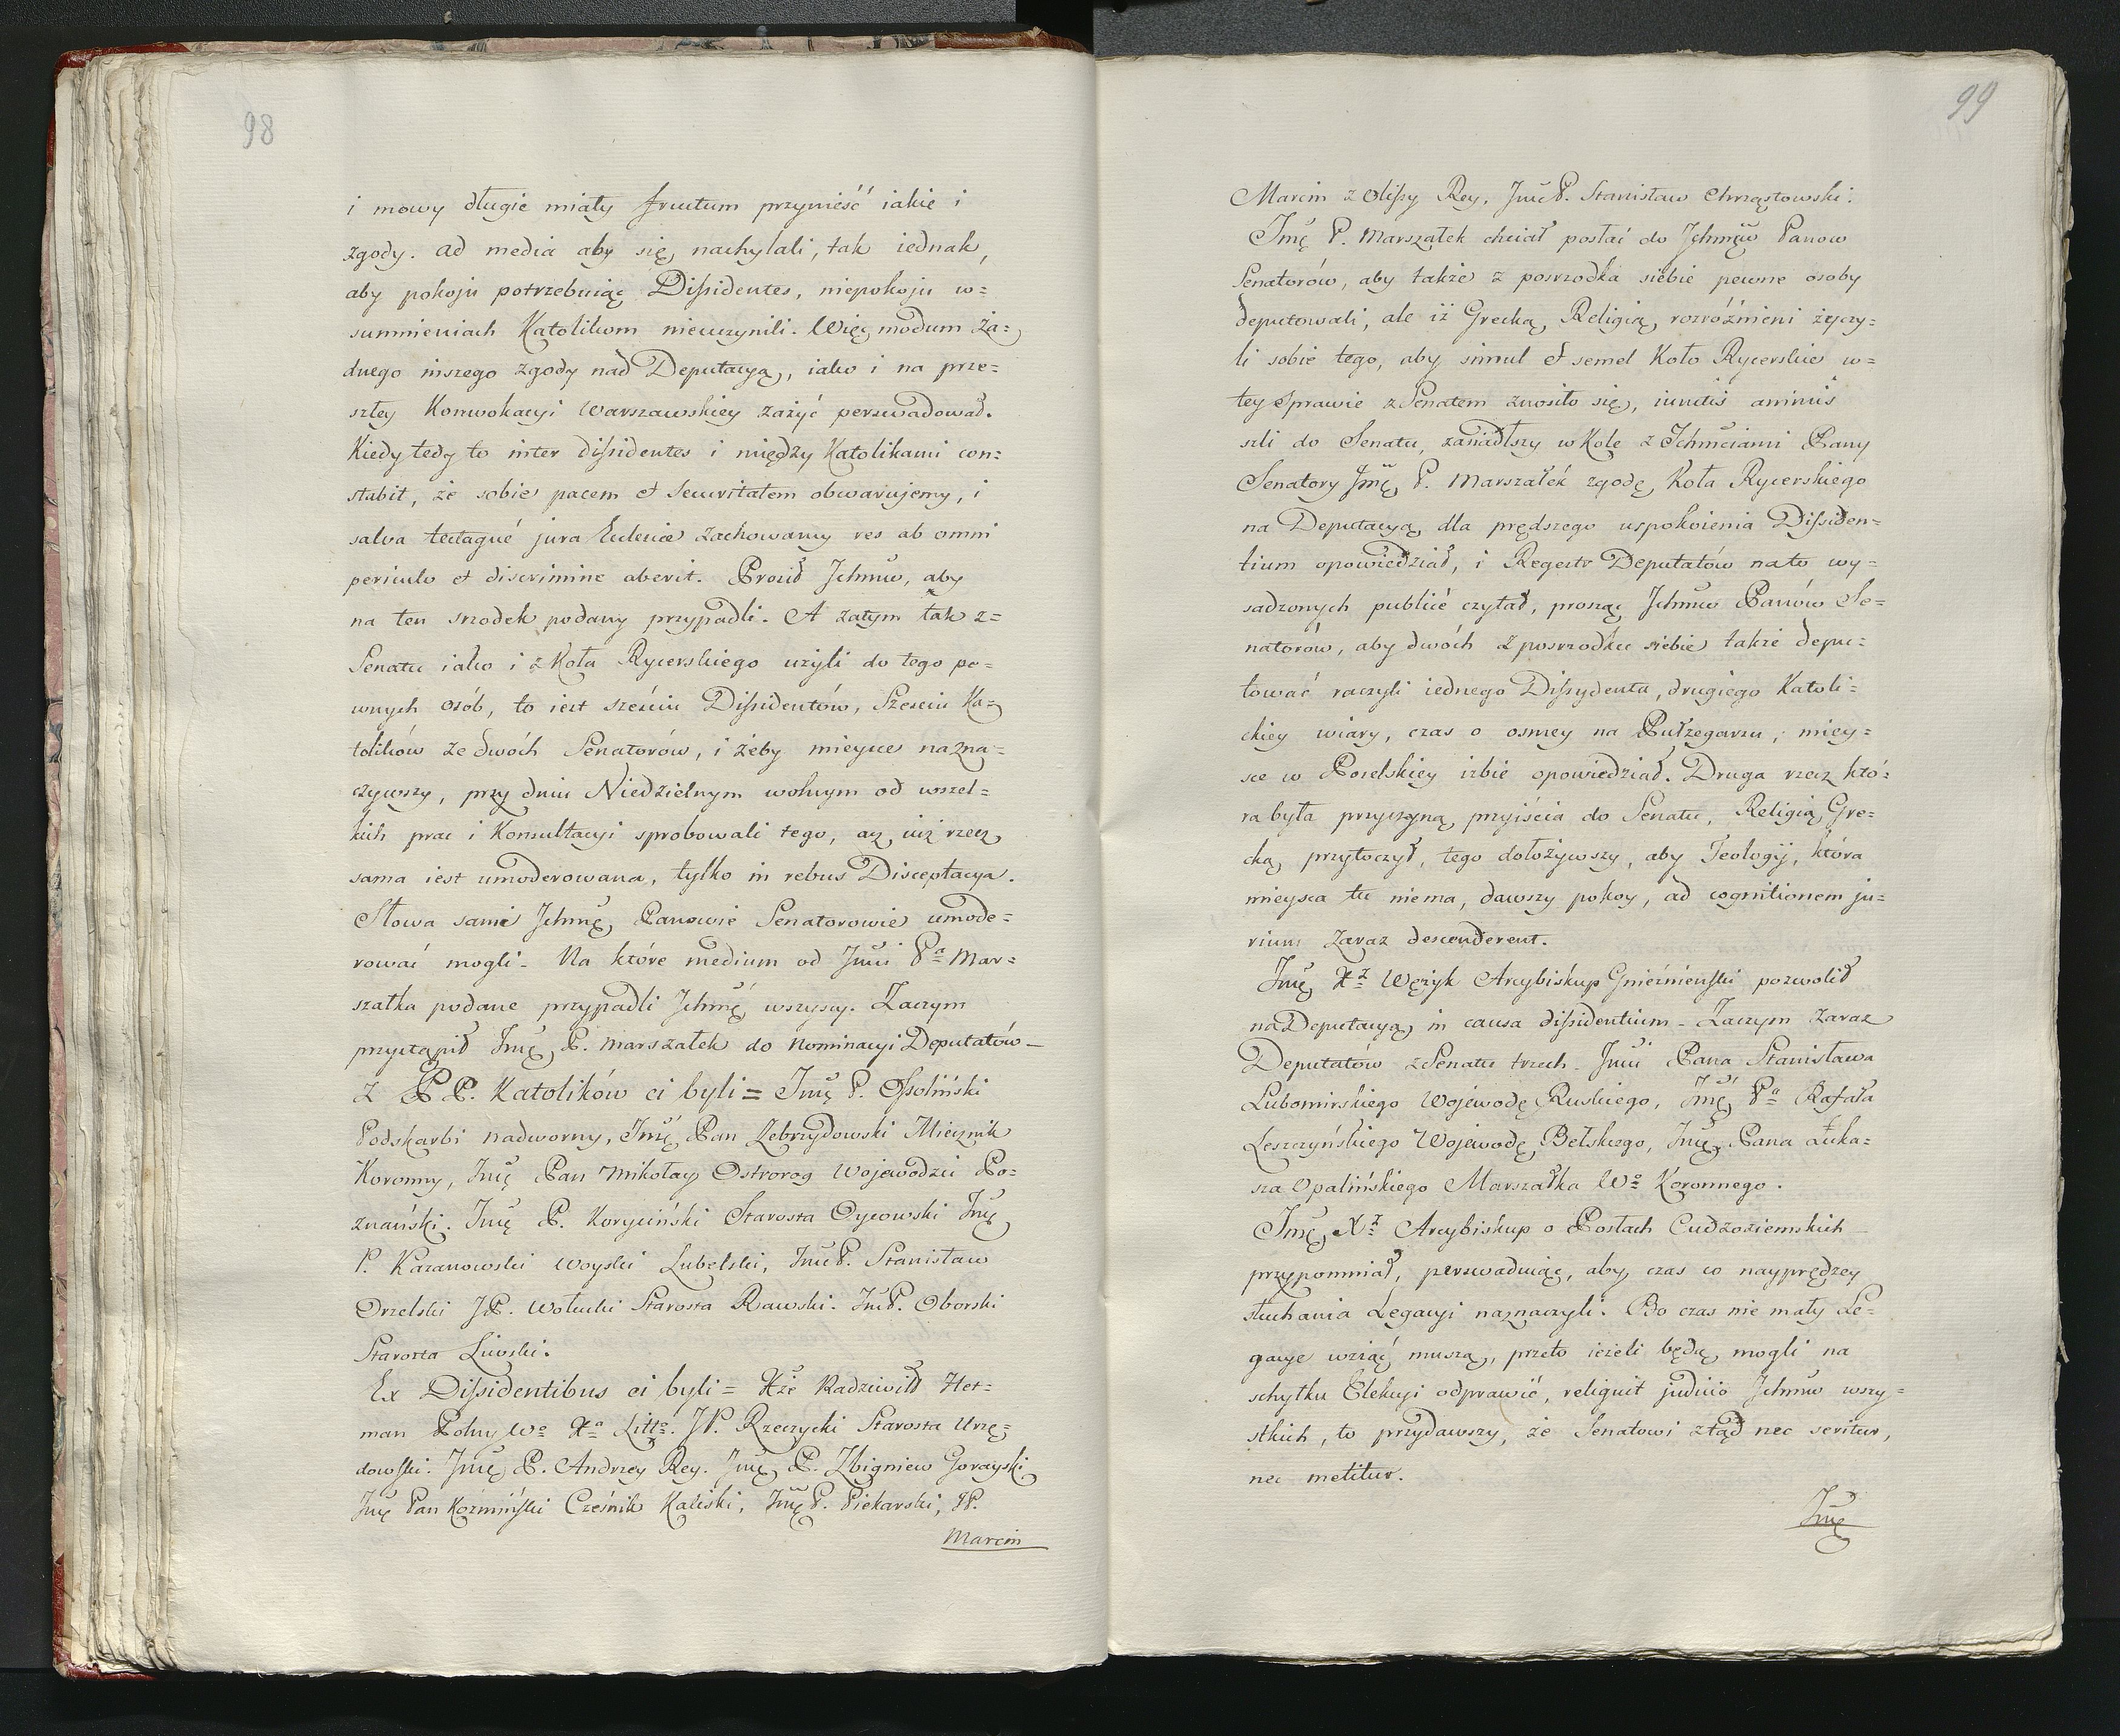 98
i mowy długie miały fructum przynieść iakie i
zgody. ad media aby się nachylali, tak iednak,
aby pokoju potrzebuiąc Dißidentes, niepokoju w=
sumnieniach Katolikom nieuczynili. Więc modum ża=
dnego inszego zgody nad Deputacyą, iako i na prze=
szłey Konwokacyi Warszawskiey zażyć perswadował.
Kiedy tedy to inter dißidentes i między Katolikami con=
stabit, że sobie pacem et securitatem obwarujemy, i
salva tectaque jura Ecclesiae zachowamy res ab omni
periculo et discrimine aberit. Prosił Jchmw, aby
na ten srzodek podany przypadli. A zatym tak z=
Senatu iako i z Koła Rycerskiego użyli do tego pe=
wnych osób, to iest sześciu Dißidentów, Sześciu Ka=
tolików ze dwóch Senatorów, i żeby mieysce nazna=
czywszy, przy dniu Niedzielnym wolnym od wszel=
kich prac i Konsultacyi sprobowali tego, aż iuż rzecz
sama iest umoderowana, tylko in rebus Disceptacya.
Słowa sami Jchmę Panowie Senatorowie umode=
rować mogli. Na które medium od Jmci Pa Mar=
szałka podane przypadli Jchmć wszyscy. Zaczym
przystąpił Jmę P. Marszałek do Nominacyi Deputatów
Z PP. Katolików ci byli = Jmę P. Oßoliński
Podskarbi nadworny, Jmć Pan Zebrzydowski Miecznik
Koronny, Jmę Pan Mikołay Ostrorog Wojewodzic Po=
znański. Jmę P. Koryciński Starosta Oycowski Jmę
P. Kazanowski Woyski Lubelski, JmćP. Stanisław
Orzelski JP. Wołucki Starosta Rawski. JmP. Oborski
Starosta Liwski.
Ex Dißidentibus ci byli = Xże Radziwiłł Het=
man Polny Wo Xa Litto. JP. Rzeczycki Starosta Urzę=
dowski. Jmę P. Andrzey Rey. Jmę P. Zbigniew Gorayski
Jmę Pan Koźmiński Cześnik Kaliski, Jmę P. Piekarski, JP.
Marcin
99
Marcin z Olißy Rey, JmćP. Stanisław Chrząstowski.
Jmę P. Marszałek chciał posłać do Jchmęw Panow
Senatorów, aby także z posrzodka siebie pewne osoby
deputowali, ale iż Grecką Religią rozróżnieni życzy=
li sobie tego, aby simul et semel Koło Rycerskie w=
tey sprawie z Senatem znosiło się, iunctis animis
szli do Senatu, zasiadłszy w Kole z Jchmciami Pany
Senatory Jmę P. Marszałek zgodę Koła Rycerskiego
na Deputacyą dla prędszego uspokoienia Dißiden=
tium opowiedział, i Regestr Deputatów na to wy=
sadzonych publicé czytał, prosząc Jchmw Panów Se=
natorów, aby dwóch z posrzodku siebie także depu=
tować raczyli iednego Dißydenta, drugiego Katoli=
ckiey wiary, czas o osmey na Pułzegarzu, miey=
sce w Poselskiey izbie opowiedział. Druga rzecz któ=
ra była przyczyną przyiścia do Senatu, Religią Gre=
cką przytoczył, tego dołożywszy, aby Teologij, która
mieysca tu niema, dawszy pokoy, ad cognitionem ju=
rium zaraz descenderent.
Jmę Xz Wężyk Arcybiskup Gnieźnieński pozwolił
na Deputacyą in causa dißidentium. Zaczym zaraz
Deputatów z Senatu trzech. Jmci Pana Stanisława
Lubomirskiego Wojewodę Ruskiego, Jmć Pa Rafała
Leszczyńskiego Wojewodę Bełskiego, Jmę Pana Łuka=
sza Opalińskiego Marszałka Wo Koronnego.
Jmę Xz Arcybiskup o Posłach Cudzoziemskich
przypomniał, perswaduiąc, aby czas co nayprędzey
słuchania Legacyi naznaczyli. Bo czas nie mały Le=
gacye wziąć muszą, przeto ieżeli będą mogli na
schyłku Elekcyi odprawić, reliquit judicio Jchmw wszy=
stkich, to przydawszy, że Senatowi ztąd nec seritur,
nec metitur.
Jmę